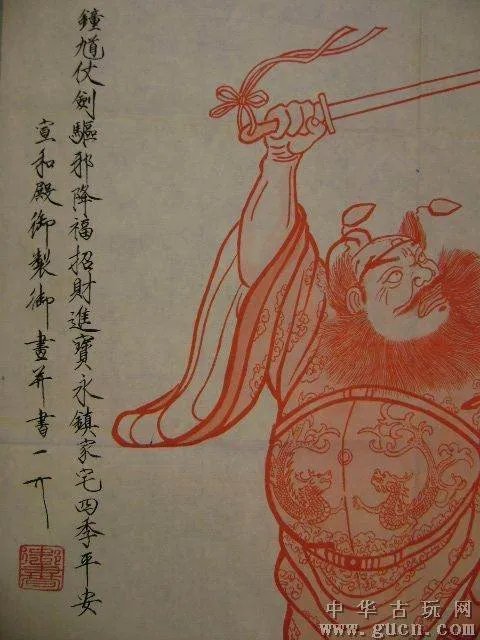 鐘馗仗劍驅邪降福招財進寶永鎮家宅四季平安
宣和殿御製御畫并書一
御書
中华古玩网
www.gucn.com